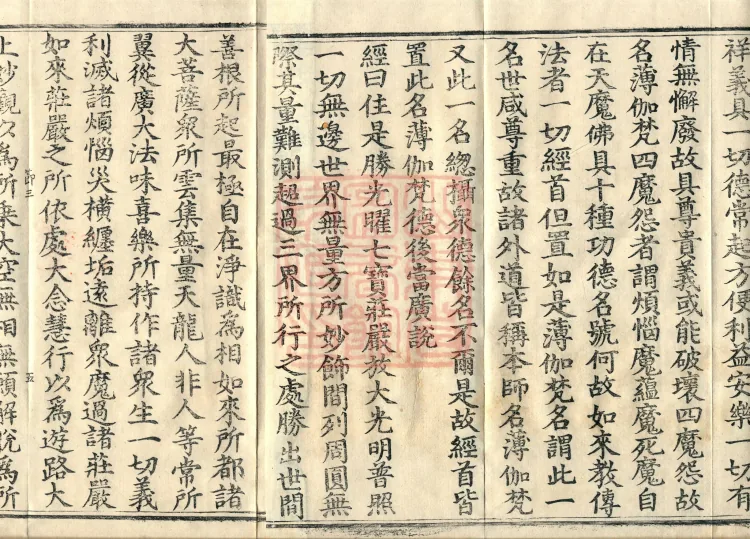 祥義具一切德常起方便利益安樂一切有
情無懈廢故具尊貴義或能破壞四魔怨故
名薄伽梵四魔怨者謂煩惱魔蘊魔死魔自
在天魔佛具十種功德名號何故如來教傳
法者一切經首但置如是薄伽梵名謂此一
名世咸尊重故諸外道皆稱本師名薄伽梵
又此一名緫攝衆德餘名不爾是故經首皆
置此名薄伽梵德後當廣說
經曰住最勝光曜七寶莊嚴放大光明普照
一切無邊世界無量方所妙飾間列周圓無
際其量難測超過三界所行之處勝出世間
善根所起最極自在淨識爲相如來所都諸
大菩薩衆所雲集無量天龍人非人等常所
翼從廣大法味喜樂所持作諸衆生一切義
利滅諸煩惱災橫纏垢遠離衆魔過諸莊嚴
如來莊嚴之所依處大念慧行以爲遊路大
上妙觀以爲所乘大空無相無願解脫爲所